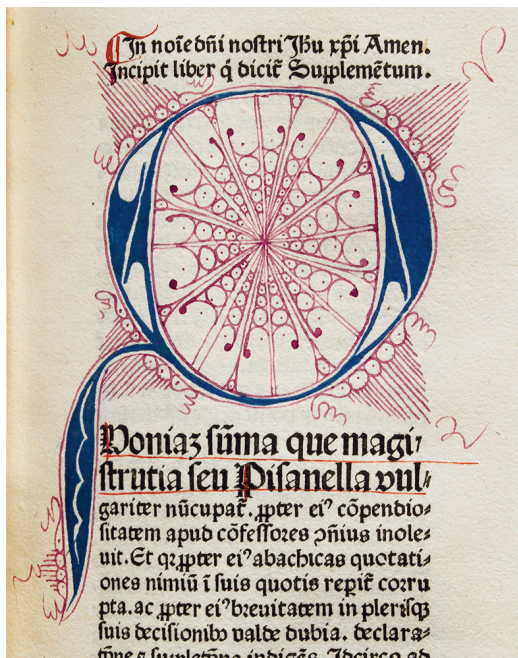 In noīe dn̄i nostri Jh̄u xp̄i Amen.
Incipit liber q̄ dicit᷑ Supplemētum.
Q
Uoniaꝫ sūma que magi⸗
strutia seu Pisanella vul⸗
gariter nūcupat᷑. ꝓpter eiꝰ cōpendio⸗
sitatem apud cōfessores ꝯniūs inole⸗
uit. Et qꝛ ꝓpter eiꝰ abachicas quotati⸗
ones nimiū ī suis quotis reꝑit᷑ corru
pta. ac ꝓpter eiꝰ breuitatem in plerisqꝫ
suis decisionibꝰ valde dubia. declara⸗
Idcirco ad